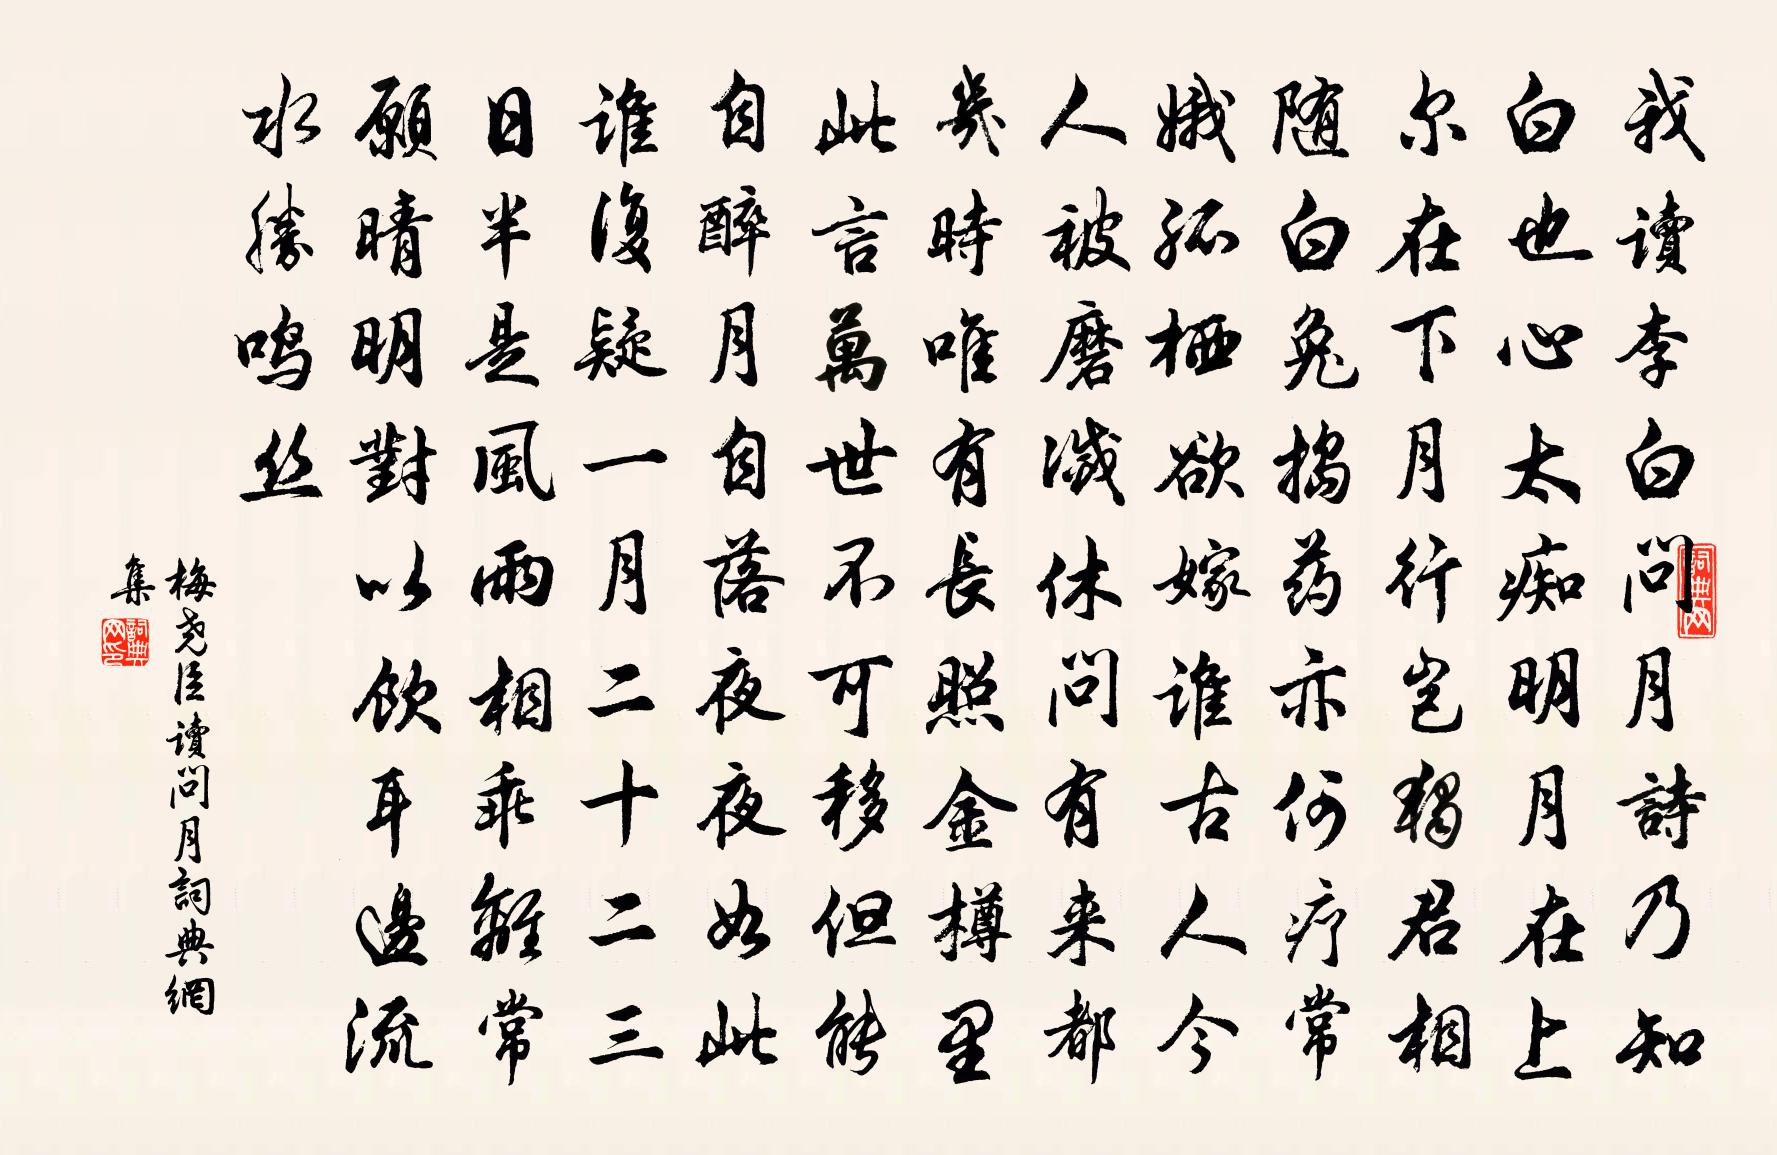 我讀李白問月詩乃知
白也心太痴明月在上
尔在下月行豈獨君相
随白兔搗药亦何疗常
娥孤栖欲嫁誰古人今
人被磨滅休問有来都
幾時唯有長照金樽里
此言萬世不可移但能
自醉月自落夜夜如此
誰復疑一月二十二三
日半是風雨相乖離常
願晴明對以飲耳邊流
水勝鸣丝
梅尧臣讀問月詞典網
集
词典网
詞典网印